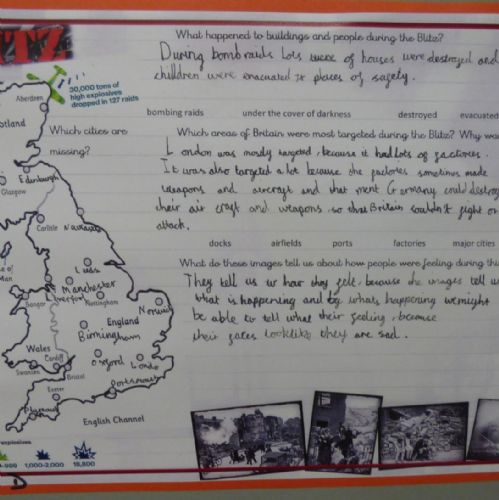 TZ
30,000 tons of
high explosives
dropped in 127 raids
What happened to buildings and people during the Blitz?
During bombraids lots were of houses were destroyed and
children were evacuated to places of safety.
bombing raids under the cover of darkness destroyed evacuated
Which cities are
missing?
Which areas of Britain were most targeted during the Blitz? Why wa
London was mostly targeted, because it had lots of factories.
It was also targeted a lot because the factories sometimes made
weapons and aircraft and that ment Germany could destroy
their air craft and weapons so that Britain couldn't fight or
attack.
docks airfields ports factories major cities
What do these images tell us about how people were feeling during this
They tell us how they felt, because the images tell us
what is happening and by whats happening we might
be able to tell what their feeling, because
their faces look like they are sad.
Aberdeen
otland
Edinburgh
Glasgow
Carlisle
Newcastle
le of
Man
Leeds
Manchester
Liverpool
Bangor
Nottingham
Norwich
England
Birmingham
Wales
Cardiff
Oxford
London
Swansea
Bristol
Exeter
Portsmouth
Plymouth
English Channel
explosives
1,000-2,000 18,800